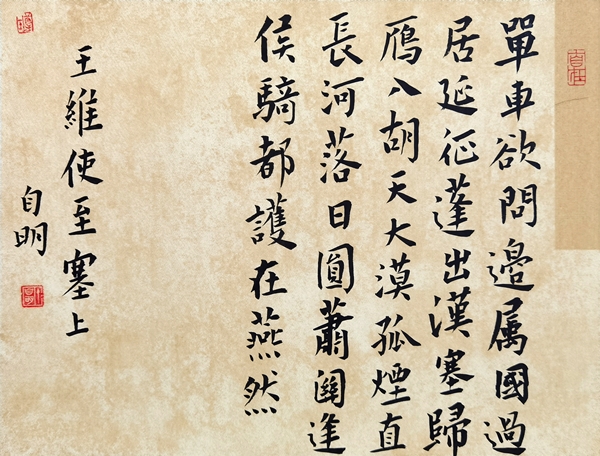 單車欲問邊屬國過
居延征蓬出漢塞歸
鴈入胡天大漠孤煙直
長河落日圓蕭關逢
侯騎都護在燕然
王維使至塞上
自明